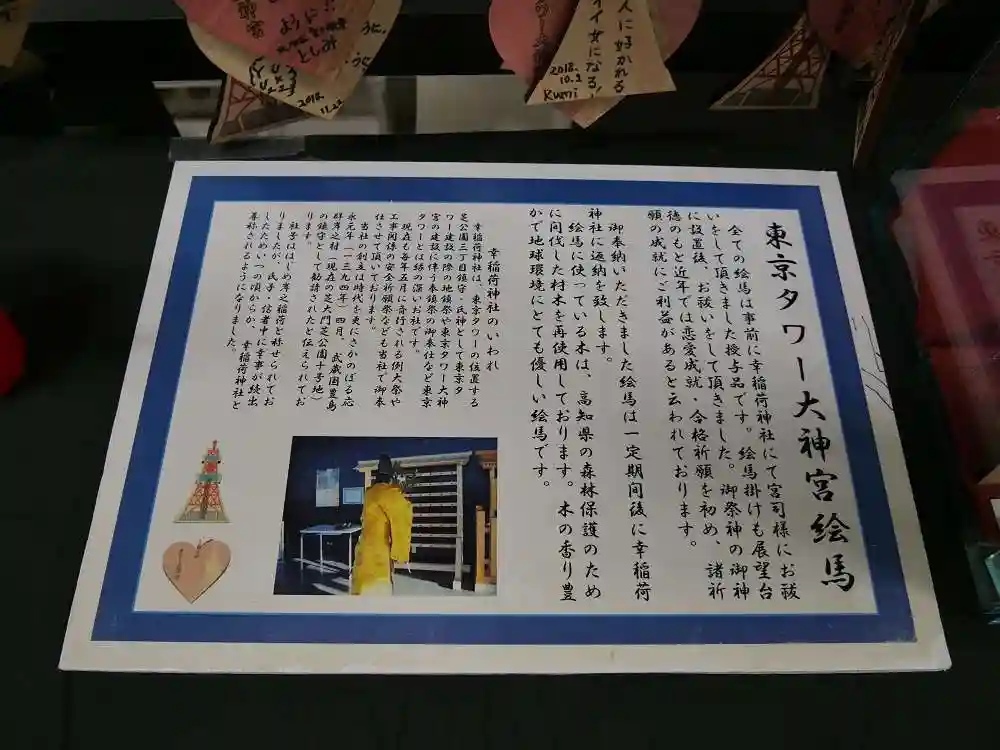 東京タワー大神宮絵馬
全ての絵馬は事前に幸稲荷神社にて宮司様にお祓
いをして頂きました授与品です。絵馬掛けも展望台
に設置後、お祓いをして頂きました。御祭神の御神
徳のもと近年では恋愛成就・合格祈願を初め、諸祈
願の成就にご利益があると云われております。
御奉納いただきました絵馬は一定期間後に幸稲荷
神社に返納を致します。
絵馬に使っている木は、高知県の森林保護のため
に間伐した材木を再使用しております。木の香り豊
かで地球環境にとても優しい絵馬です。
幸稲荷神社のいわれ
幸稲荷神社は、東京タワーの位置する
芝公園三丁目鎮守・氏神として東京タ
ワー建設の際の地鎮祭や東京タワー大神
宮の建設に伴う奉鎮祭の御奉仕など東京
タワーとは縁の深いお社です。
現在も毎年五月に斎行される例大祭や
工事関係の安全祈願祭なども当社で御奉
仕させて頂いております。
当社の創立は時代を更にさかのぼる応
永元年(一三九四年)四月、武蔵国豊島
郡岸之村(現在の芝大門芝公園十号地)
の鎮守として勧請されたと伝えられてお
ります。
社号ははじめ岸之稲荷と称せられてお
りましたが、氏子・信者中に幸事が続出
したためいつの頃からか、幸稲荷神社と
尊称されるようになりました。
人に好かれる
イイ女になる!
2018.
10.2
Kumi
ように!!
としみ
2018.
11.22